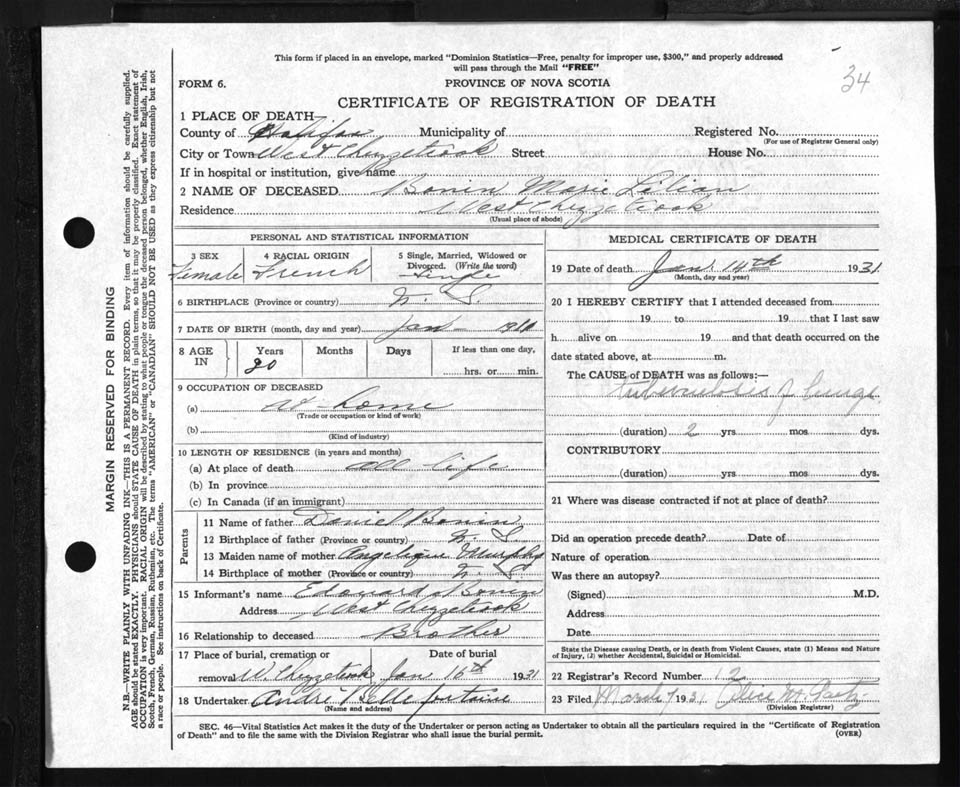 This form if placed in an envelope, marked "Dominion Statistics—Free, penalty for improper use, $300," and properly addressed
will pass through the Mail "FREE"
34
FORM 6.
PROVINCE OF NOVA SCOTIA
CERTIFICATE OF REGISTRATION OF DEATH
1 PLACE OF DEATH—
County of Halifax Municipality of Registered No.
(For use of Registrar General only)
City or Town West Chezzetcook Street House No.
If in hospital or institution, give name
2 NAME OF DECEASED Bonin Marie Lilian
Residence West Chezzetcook
(Usual place of abode)
PERSONAL AND STATISTICAL INFORMATION
3 SEX 4 RACIAL ORIGIN 5 Single, Married, Widowed or Divorced. (Write the word)
Female French Single
6 BIRTHPLACE (Province or country) N. S.
7 DATE OF BIRTH (month, day and year) Jan — 1911
8 AGE IN Years Months Days If less than one day,
20 hrs. or min.
9 OCCUPATION OF DECEASED
(a) at home
(Trade or occupation or kind of work)
(b)
(Kind of industry)
10 LENGTH OF RESIDENCE (in years and months)
(a) At place of death all life
(b) In province
(c) In Canada (if an immigrant)
Parents
11 Name of father Daniel Bonin
12 Birthplace of father (Province or country) N. S.
13 Maiden name of mother Angelique Murphy
14 Birthplace of mother (Province or country) N. S.
15 Informant's name Edouard Bonin
Address West Chezzetcook
16 Relationship to deceased Brother
17 Place of burial, cremation or Date of burial
removal W. Chezzetcook Jan 16th 1931
18 Undertaker André Bellefontaine
(Name and address)
MEDICAL CERTIFICATE OF DEATH
19 Date of death Jan. 14th 1931
(Month, day and year)
20 I HEREBY CERTIFY that I attended deceased from
19 to 19 that I last saw
h alive on 19 and that death occurred on the
date stated above, at m.
The CAUSE of DEATH was as follows:—
tuberculosis of lungs
(duration) 2 yrs mos dys.
CONTRIBUTORY
(duration) yrs mos dys.
21 Where was disease contracted if not at place of death?
Did an operation precede death? Date of
Nature of operation
Was there an autopsy?
(Signed) M.D.
Address
Date
State the Disease causing Death, or in Death from Violent Causes, state (1) Means and Nature
of Injury, (2) whether Accidental, Suicidal or Homicidal.
22 Registrar's Record Number 12
23 Filed March 7 1931 Alice M.
(Division Registrar)
SEC. 46—Vital Statistics Act makes it the duty of the Undertaker or person acting as Undertaker to obtain all the particulars required in the "Certificate of Registration
of Death" and to file the same with the Division Registrar who shall issue the burial permit. (OVER)
MARGIN RESERVED FOR BINDING
N.B.—WRITE PLAINLY WITH UNFADING INK—THIS IS A PERMANENT RECORD. Every item of information should be carefully supplied.
AGE should be stated EXACTLY. PHYSICIANS should STATE CAUSE OF DEATH in plain terms, so that it may be properly classified. Exact statement of
OCCUPATION is very important. RACIAL ORIGIN will be described by stating to what people or tongue the deceased person belonged, whether English, Irish,
Scotch, French, German, Russian, Ruthenian, etc. The terms "AMERICAN" or "CANADIAN" SHOULD NOT BE USED as they express citizenship but not
a race or people. See instructions on back of Certificate.